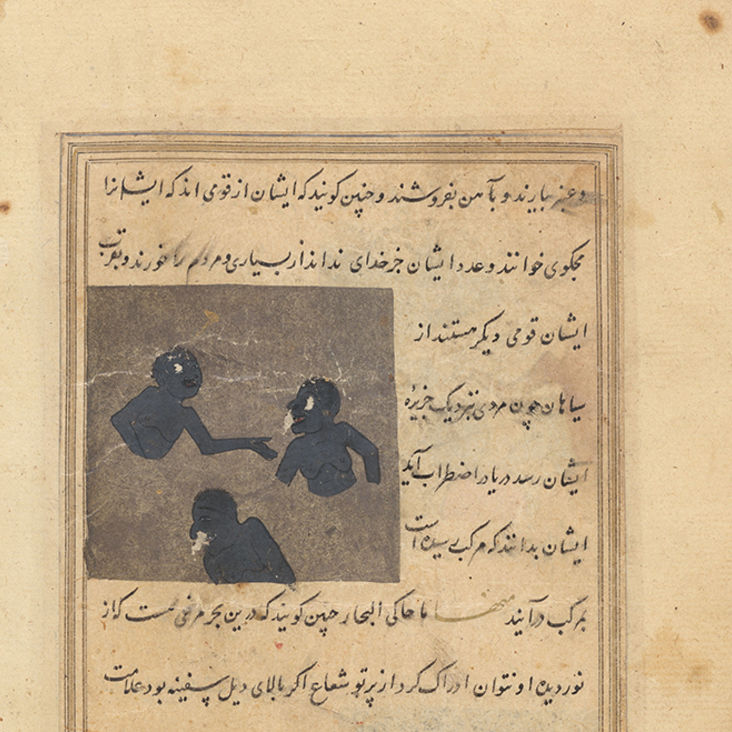 و عنبر بیارند و بآهن بفروشند و چنین کویند که ایشان از قومی اند که ایشانرا
محکوی خوانند و عدد ایشان جز خدای نداند از بسیاری و مردم را خورند و بقرب
ایشان قومی دیکر هستند از
سیاهان چون مردی نزدیک جزیرهٔ
ایشان رسد دریا در اضطراب آید
ایشان بدانند که مرکب رسیده است
بمرکب درآیند منها ما حاکی البحار چنین کویند که درین بحر مرغی هست که از
نور دیده او نتوان ادراک کرد از پرتو شعاع اکر بالای دیل سفینه بود علامت